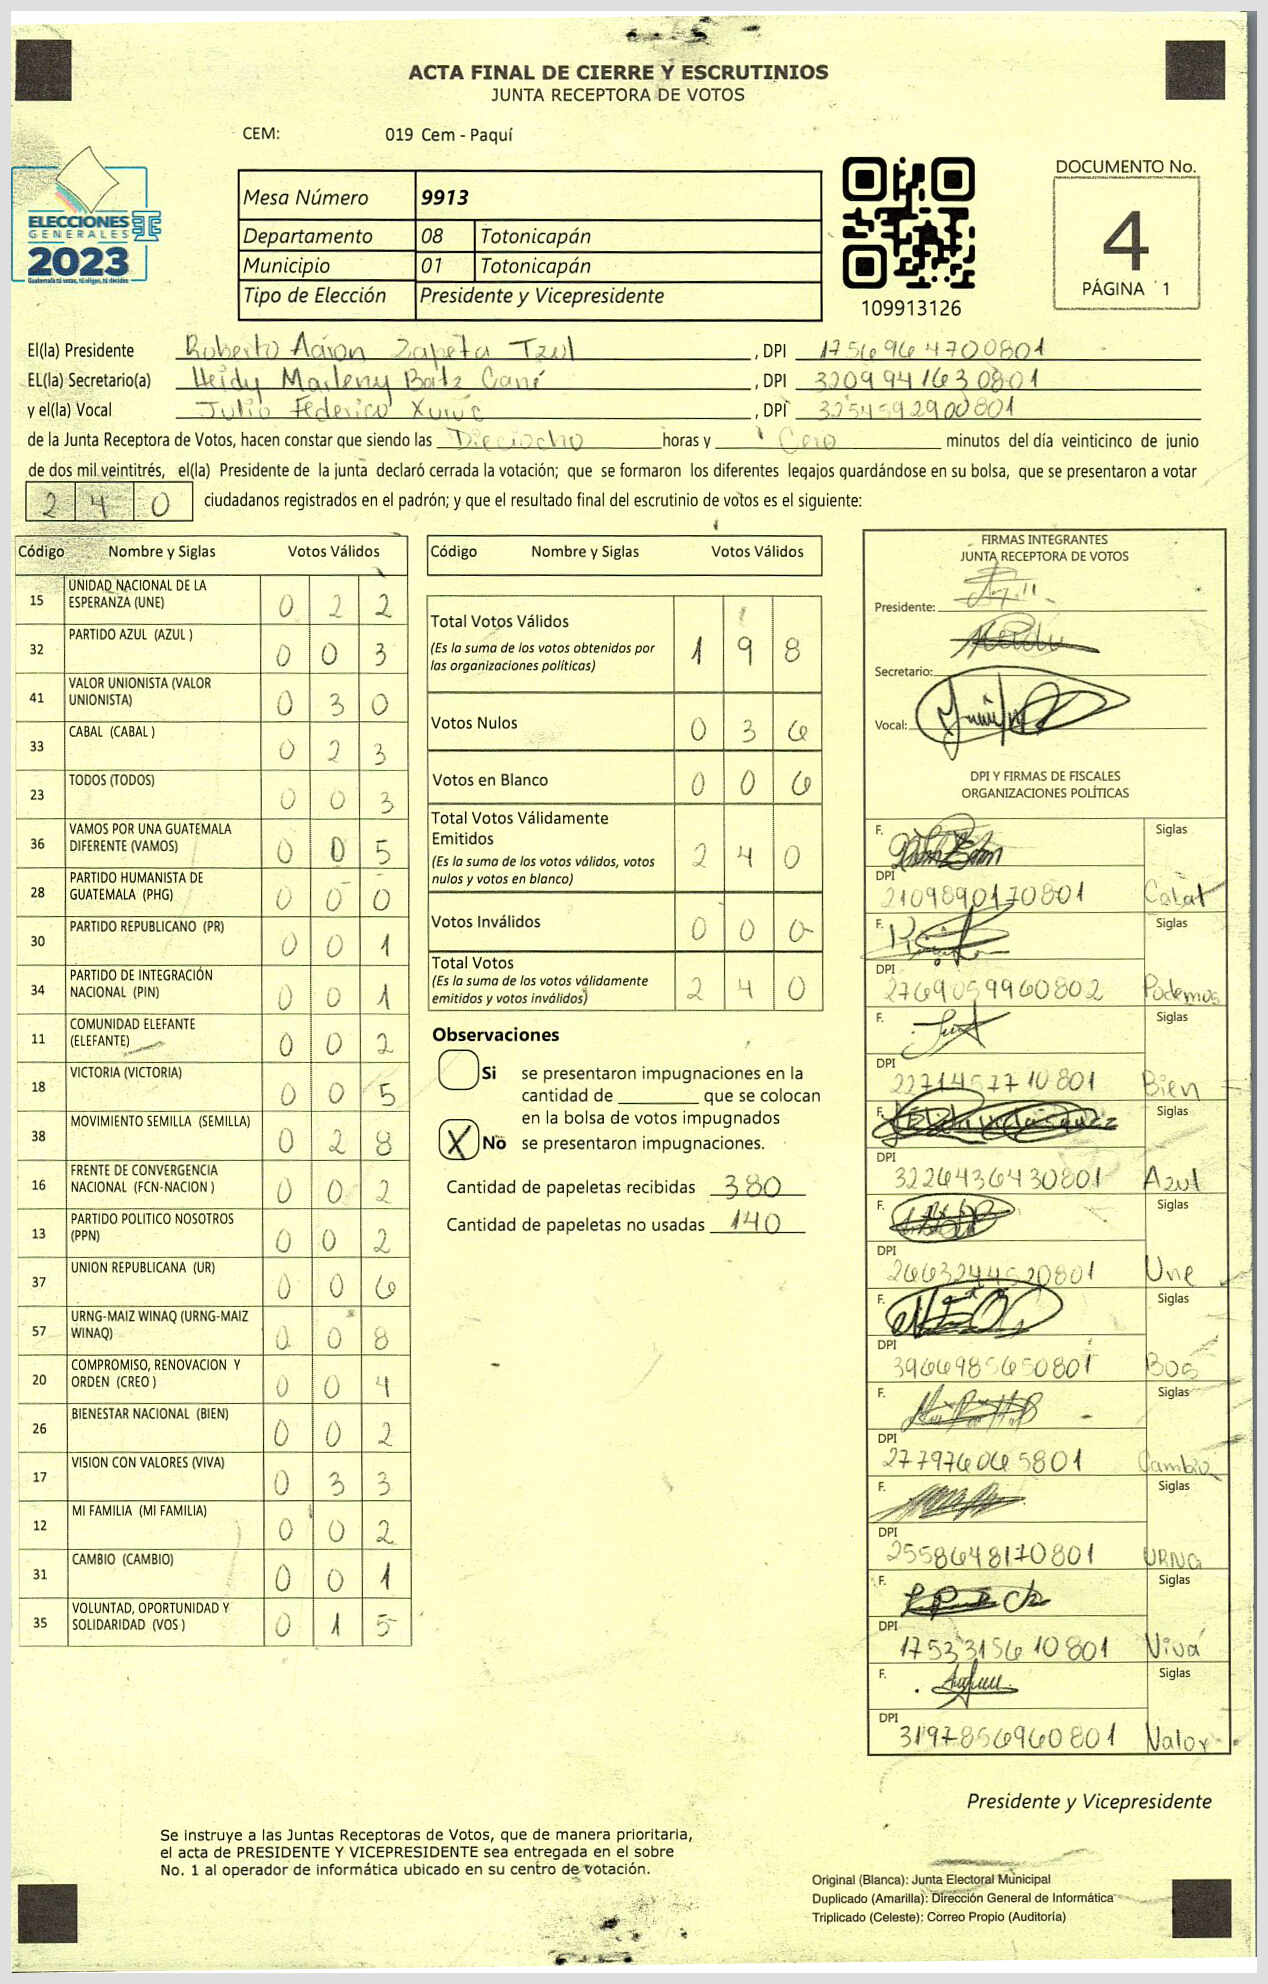 ACTA FINAL DE CIERRE Y ESCRUTINIOS
JUNTA RECEPTORA DE VOTOS
CEM: 019 Cem - Paquí
ELECCIONES
GENERALES
2023
Guatemala tú votas, tú eliges, tú decides
Mesa Número 9913
Departamento 08 Totonicapán
Municipio 01 Totonicapán
Tipo de Elección Presidente y Vicepresidente
109913126
DOCUMENTO No.
4
PÁGINA 1
El(la) Presidente Roberto Aáron Zapeta Tzul , DPI 1756964700801
EL(la) Secretario(a) Heidy Marleny Batz Cané , DPI 3209941630801
y el(la) Vocal Julio Federico Xuruc , DPI 3254592900801
de la Junta Receptora de Votos, hacen constar que siendo las Dieciocho horas y Cero minutos del día veinticinco de junio
de dos mil veintitrés, el(la) Presidente de la junta declaró cerrada la votación; que se formaron los diferentes legajos guardándose en su bolsa, que se presentaron a votar
240 ciudadanos registrados en el padrón; y que el resultado final del escrutinio de votos es el siguiente:
Código Nombre y Siglas Votos Válidos
15 UNIDAD NACIONAL DE LA ESPERANZA (UNE) 0 2 2
32 PARTIDO AZUL (AZUL ) 0 0 3
41 VALOR UNIONISTA (VALOR UNIONISTA) 0 3 0
33 CABAL (CABAL ) 0 2 3
23 TODOS (TODOS) 0 0 3
36 VAMOS POR UNA GUATEMALA DIFERENTE (VAMOS) 0 0 5
28 PARTIDO HUMANISTA DE GUATEMALA (PHG) 0 0 0
30 PARTIDO REPUBLICANO (PR) 0 0 1
34 PARTIDO DE INTEGRACIÓN NACIONAL (PIN) 0 0 1
11 COMUNIDAD ELEFANTE (ELEFANTE) 0 0 2
18 VICTORIA (VICTORIA) 0 0 5
38 MOVIMIENTO SEMILLA (SEMILLA) 0 2 8
16 FRENTE DE CONVERGENCIA NACIONAL (FCN-NACION ) 0 0 2
13 PARTIDO POLITICO NOSOTROS (PPN) 0 0 2
37 UNION REPUBLICANA (UR) 0 0 6
57 URNG-MAIZ WINAQ (URNG-MAIZ WINAQ) 0 0 8
20 COMPROMISO, RENOVACION Y ORDEN (CREO ) 0 0 4
26 BIENESTAR NACIONAL (BIEN) 0 0 2
17 VISION CON VALORES (VIVA) 0 3 3
12 MI FAMILIA (MI FAMILIA) 0 0 2
31 CAMBIO (CAMBIO) 0 0 1
35 VOLUNTAD, OPORTUNIDAD Y SOLIDARIDAD (VOS ) 0 1 5
Código Nombre y Siglas Votos Válidos
Total Votos Válidos 1 9 8
(Es la suma de los votos obtenidos por
las organizaciones políticas)
Votos Nulos 0 3 6
Votos en Blanco 0 0 6
Total Votos Válidamente
Emitidos 2 4 0
(Es la suma de los votos válidos, votos
nulos y votos en blanco)
Votos Inválidos 0 0 0
Total Votos
(Es la suma de los votos válidamente
emitidos y votos inválidos) 2 4 0
Observaciones
Si se presentaron impugnaciones en la
cantidad de ________ que se colocan
en la bolsa de votos impugnados
X No se presentaron impugnaciones.
Cantidad de papeletas recibidas 380
Cantidad de papeletas no usadas 140
FIRMAS INTEGRANTES
JUNTA RECEPTORA DE VOTOS
Presidente:
Secretario:
Vocal:
DPI Y FIRMAS DE FISCALES
ORGANIZACIONES POLÍTICAS
F. Siglas
DPI 2109890170801 Cabal
F. Siglas
DPI 2769059960802 Podemos
F. Siglas
DPI 2271457710801 Bien
F. Siglas
DPI 3226436430801 Azul
F. Siglas
DPI 2663244520801 Une
F. Siglas
DPI 3966985650801 Bos
F. Siglas
DPI 277976065801 Cambio
F. Siglas
DPI 2558648170801 URNG
F. Siglas
DPI 1753315610801 Vivá
F. Siglas
DPI 3197856960801 Valor
Presidente y Vicepresidente
Se instruye a las Juntas Receptoras de Votos, que de manera prioritaria,
el acta de PRESIDENTE Y VICEPRESIDENTE sea entregada en el sobre
No. 1 al operador de informática ubicado en su centro de votación.
Original (Blanca): Junta Electoral Municipal
Duplicado (Amarilla): Dirección General de Informática
Triplicado (Celeste): Correo Propio (Auditoría)